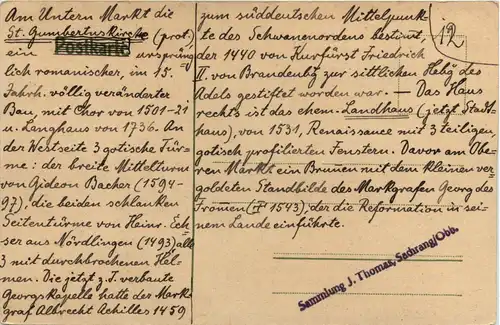 Am Untern Markt die
St. Gumbertuskirche (prot.)
Postkarte
ein ursprüng
lich romanischer, im 15.
Jahrh. völlig veränderter
Bau, mit Chor von 1501-21
u. Langhaus von 1736. An
der Westseite 3 gotische Tür-
me: der breite Mittelturm
von Gideon Bacher (1594-
97), die beiden schlanken
Seitentürme von Heinr. Ech-
ser aus Nördlingen (1493) alle
3 mit durchbrochenen Hel-
men. Die jetzt z.T. verbaute
Georgskapelle hatte der Mark
graf Albrecht Achilles 1459
zum süddeutschen Mittelpunk-
te des Schwanenordens bestimt,
der 1440 von Kurfürst Friedrich
II. von Brandenbg zur sittlichen Hebg des
Adels gestiftet worden war. — Das Haus
rechts ist das ehem. Landhaus (jetzt Stadt-
haus), von 1531, Renaissance mit 3 teiligen
gotisch profilierten Fenstern. Davor am Obe-
ren Markt ein Brunnen mit dem kleinen ver-
goldeten Standbilde des Markgrafen Georg des
Fromen († 1543), der die Reformation in sei-
nem Lande einführte.
12
Sammlung J. Thomas, Sachrang/Obb.